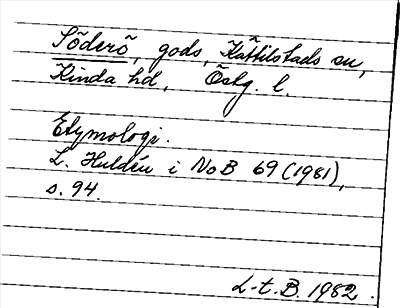 Söderö, gods, Kättilstads sn,
Kinda hd, Östg. l.
Etymologi.
L. Huldén i NoB 69 (1981),
s. 94.
L-t. B. 1982.